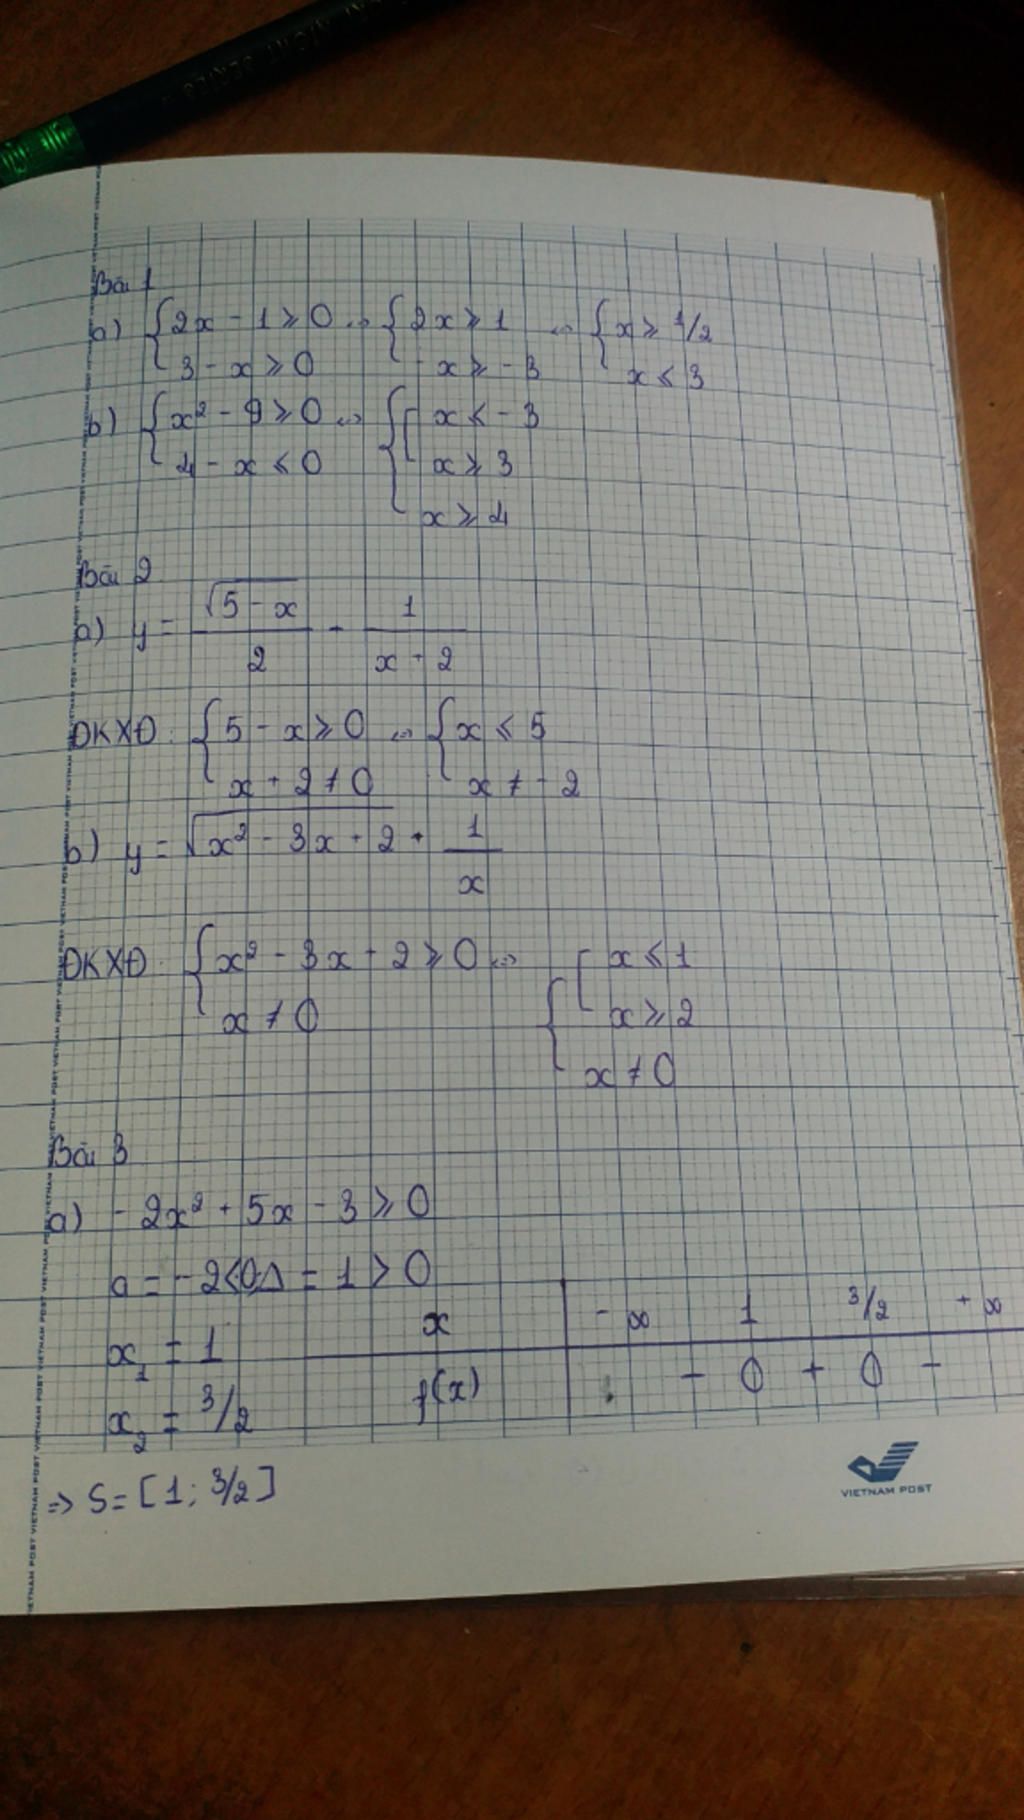 Bài 1
a) { 2x - 1 ≥ 0 <=> { 2x ≥ 1 <=> { x ≥ 1/2
3 - x ≥ 0 - x ≥ - 3 x ≤ 3
b) { x² - 9 ≥ 0 <=> { [ x ≤ - 3
4 - x ≤ 0 x ≥ 3
x ≥ 4
Bài 2
a) y = √(5 - x) / 2 - 1 / (x + 2)
ĐKXĐ: { 5 - x ≥ 0 <=> { x ≤ 5
x + 2 ≠ 0 x ≠ - 2
b) y = √(x² - 3x + 2) + 1 / x
ĐKXĐ: { x² - 3x + 2 ≥ 0 <=> { [ x ≤ 1
x ≠ 0 x ≥ 2
x ≠ 0
Bài 3
a) - 2x² + 5x - 3 ≥ 0
a = - 2 < 0 Δ = 1 > 0
x₁ = 1 x - ∞ 1 3/2 + ∞
x₂ = 3/2 f(x) - 0 + 0 -
=> S = [1; 3/2]
VIETNAM POST